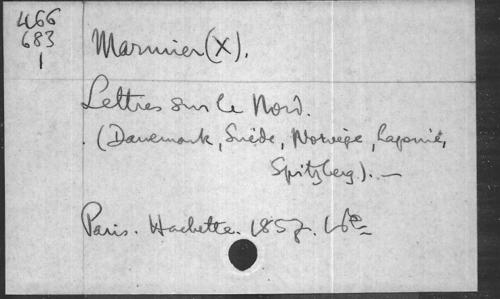 466
683
1
Marmier (X).
Lettres sur le Nord.
(Danemark, Suède, Norvège, Laponie,
Spitzberg). —
Paris. Hachette. 1857. 16e